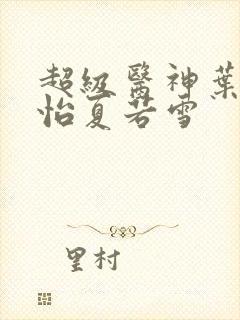 超級醫神葉
怡夏若雪
里村